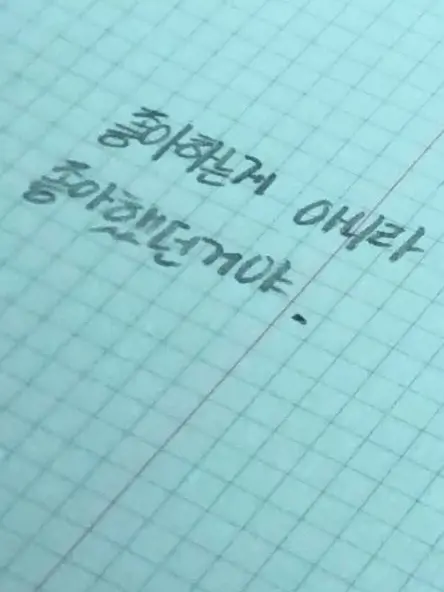 좋아하는게 아니라
좋아했던거야.